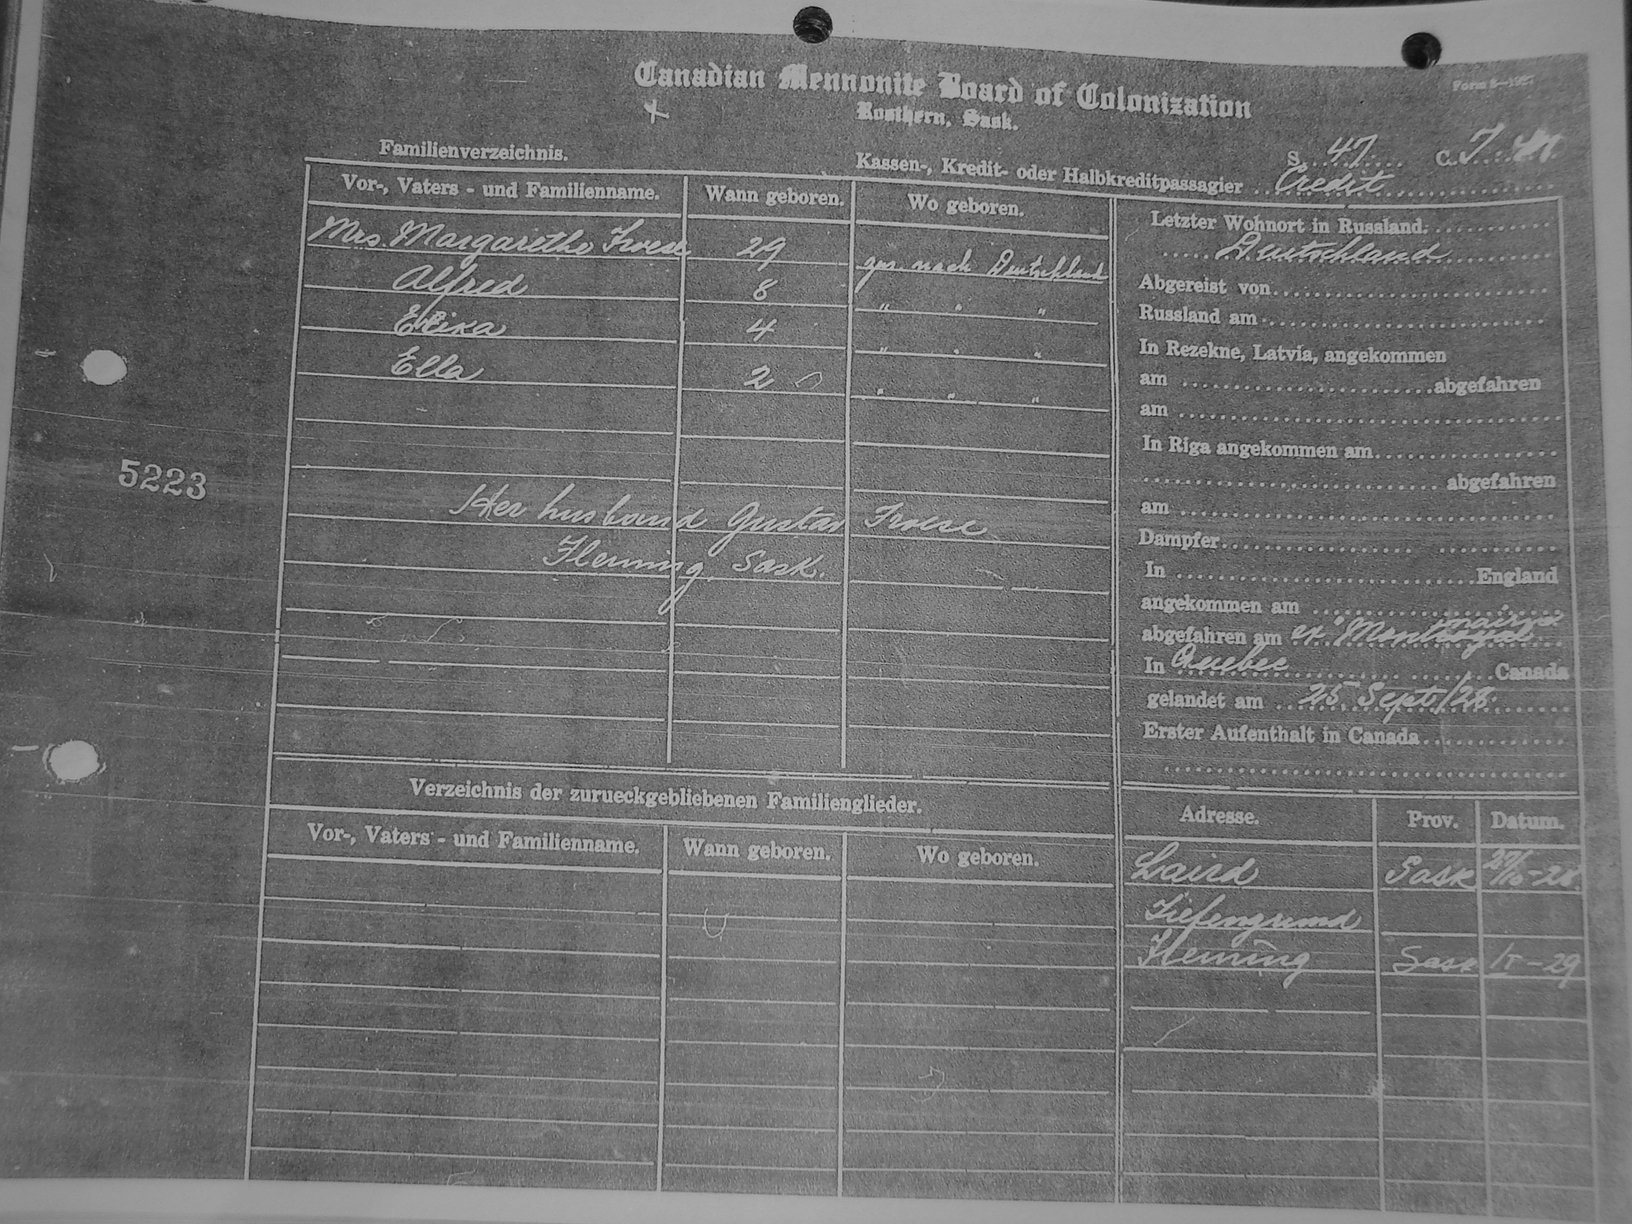 Canadian Mennonite Board of Colonization
Form 5—1927
Rosthern, Sask.
S. 47 C. 7
Familienverzeichnis.
Kassen-, Kredit- oder Halbkreditpassagier Credit
Vor-, Vaters - und Familienname. Wann geboren. Wo geboren.
Mrs. Margarethe Froese 29 nach Deutschland
Alfred 8 " " "
Erika 4 " " "
Ella 2 " " "
5223
Her husband Gustav Froese
Fleming, Sask.
Letzter Wohnort in Russland.
Deutschland
Abgereist von
Russland am
In Rezekne, Latvia, angekommen
am abgefahren
am
In Riga angekommen am
abgefahren
am
Dampfer
In England
angekommen am
abgefahren am
In Quebec Canada
gelandet am 25 Sept/28
Erster Aufenthalt in Canada
Verzeichnis der zurueckgebliebenen Familienglieder.
Vor-, Vaters - und Familienname. Wann geboren. Wo geboren.
Adresse. Prov. Datum.
Laird Sask 27/10-28
Tiefengrund
Fleming Sask -29